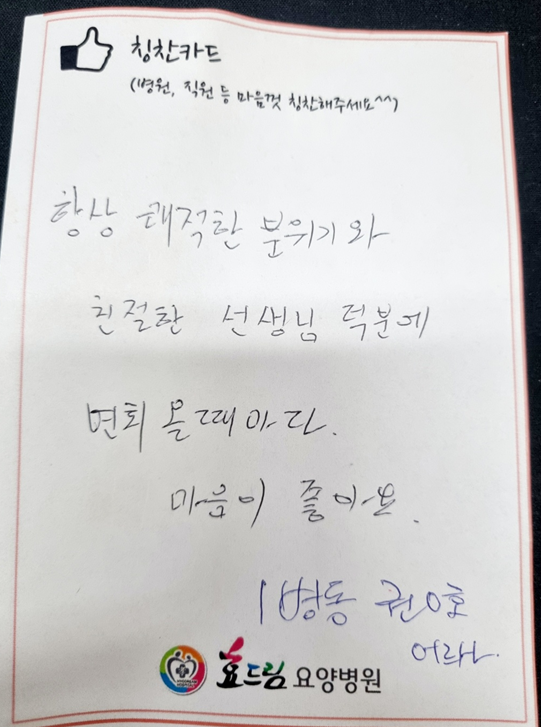 칭찬카드
(병원, 직원 등 마음껏 칭찬해주세요^^)
항상 쾌적한 분위기와
친절한 선생님 덕분에
면회 올때마다.
마음이 좋아요.
1병동 권0호
효드림 요양병원